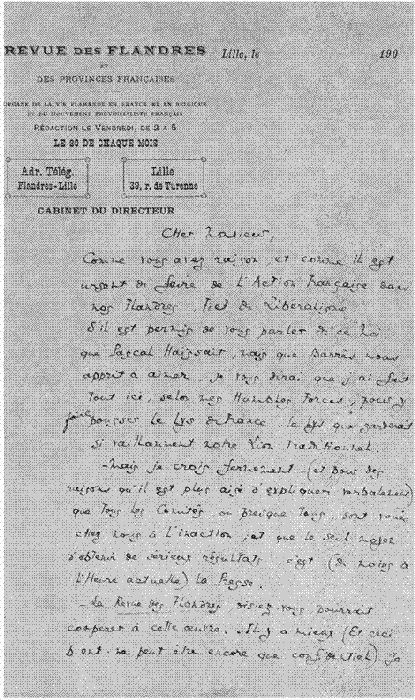 REVUE DES FLANDRES
ET
DES PROVINCES FRANÇAISES
Lille, le 190
ORGANE DE LA VIE FLAMANDE EN FRANCE ET EN BELGIQUE
ET DU MOUVEMENT FRANÇAIS
RÉDACTION LE VENDREDI, DE 2 A 5
LE 20 DE CHAQUE MOIS
Adr. Télég.
Flandres-Lille
Lille
39, r. de Turenne
CABINET DU DIRECTEUR
Cher Monsieur,
Comme vous avez raison et comme il est
urgent de faire de l'Action Française dans
nos Flandres, de Libéralisme
S'il est permis de vous parler de ce Moi
que Pascal Haïssait, mais que Barrès nous
apprit à aimer, je vous dirai que j'ai fait
tout ici, selon mes Humbles Forces, pour y
faire pousser le Lys de France, le Lys que
si vaillamment notre Traditionnel.
- Mais je crois fermement (et pour des
raisons qu'il est plus aisé d'expliquer verbalement)
que Tous les Comités, ou presque Tous, sont voués
chez nous à l'inaction, et que le seul moyen
d'obtenir de sérieux résultats c'est (du moins à
l'Heure actuelle) la Presse.
- La Revue des Flandres, disiez-vous pourrait
à cette œuvre. - Il y a mieux (Et ceci
ne peut être encore que confidentiel) Je